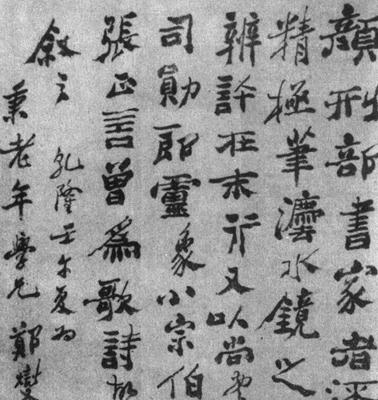 顏刑部書家者流
精極筆灋水鏡之
辨許在末行又以尚書
司勳郎盧象小宗伯
張正言曾為歌詩故
敘之 乾隆壬午夏為
秉老年學兄 鄭燮